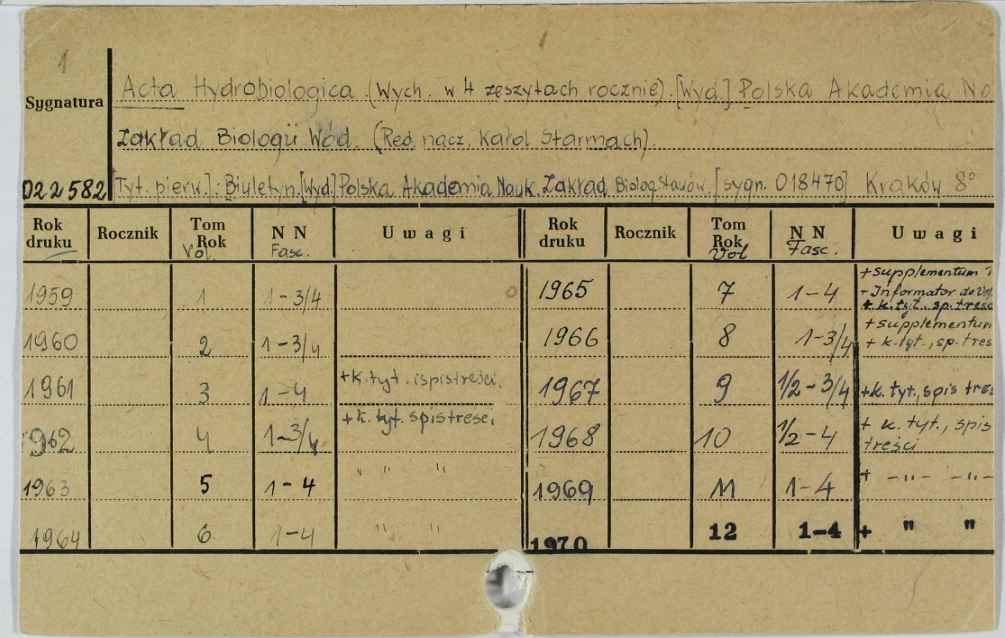 1
1
Sygnatura
Acta Hydrobiologica (Wych. w 4 zeszytach rocznie). [Wyd.] Polska Akademia Na
Zakład Biologii Wód. (Red. nacz. Karol Starmach).
022582 Tyt. pierw.]: Biuletyn. [Wyd.] Polska Akademia Nauk. Zakład Biolog. Stawów. [sygn. 018470] Kraków 8°
Rok druku Rocznik Tom Rok Vol N N Fasc. Uwagi Rok druku Rocznik Tom Rok Vol N N Fasc. Uwagi
1959 1 1-3/4 1965 7 1-4 + supplementum + Informator + k. tyt. sp. treśc
1960 2 1-3/4 1966 8 1-3/4 + supplementum + k. tyt., sp. tres
1961 3 1-4 + k. tyt. i spis treści. 1967 9 1/2-3/4 + k. tyt., spis treś
1962 4 1-3/4 + k. tyt. spis treści 1968 10 1/2-4 + k. tyt., spis treści
1963 5 1-4 " " " 1969 11 1-4 + -"- -"-
1964 6 1-4 " " 1970 12 1-4 + " "